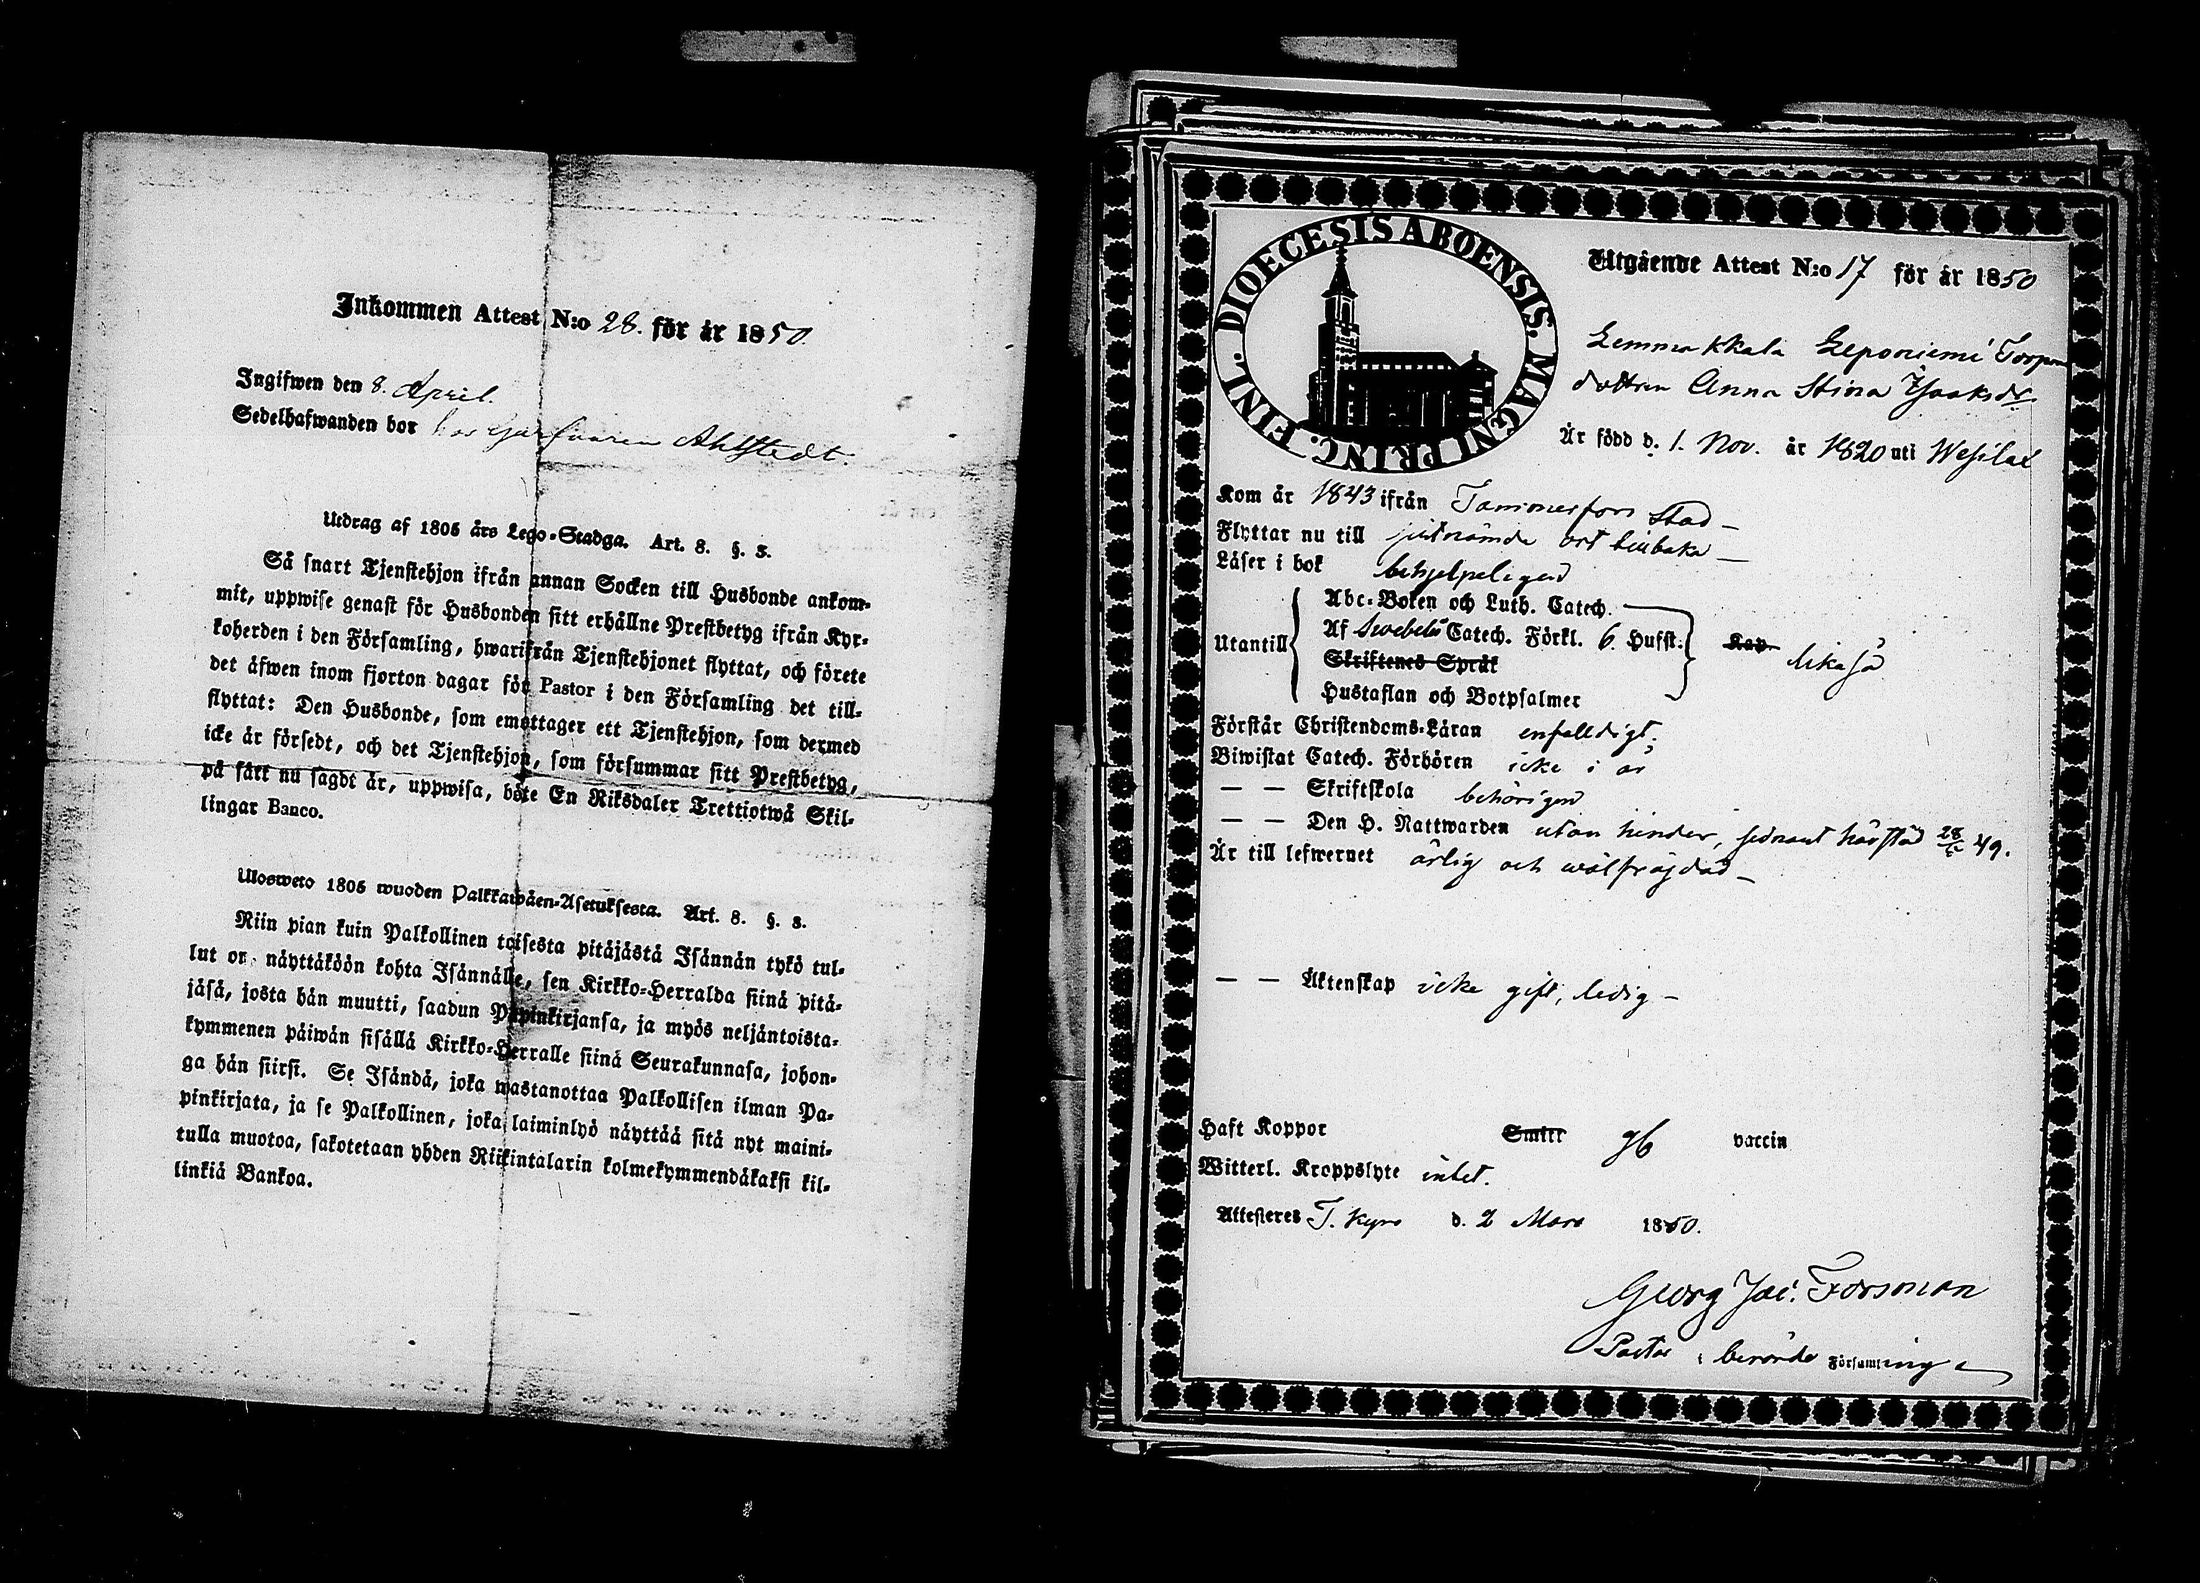 Inkommen Attest N:o 28. för år 1850.
Ingifwen den 8. April.
Sedelhafwanden bor hos Garfvaren Ahlstedt.
Utdrag af 1805 års Lego-Stadga. Art. 8. §. 3.
Så snart Tjenstehjon ifrån annan Socken till Husbonde ankom-
mit, uppwise genast för Husbonden sitt erhållne Prestbetyg ifrån Kyr-
koherden i den Församling, hwarifrån Tjenstehjonet flyttat, och förete
det äfwen inom fjorton dagar för Pastor i den Församling det till-
flyttat: Den Husbonde, som emottager ett Tjenstehjon, som dermed
icke är försedt, och det Tjenstehjon, som försummar sitt Prestbetyg,
på sätt nu sagdt är, uppwisa, böte En Riksdaler Trettiotwå Skil-
lingar Banco.
Ulosweto 1805 wuoden Palkkawäen-Asetuksesta. Art. 8. §. 3.
Niin pian kuin Palkollinen toisesta pitäjästä Isännän tykö tul-
lut on, näyttäköön kohta Isännälle, sen Kirkko-Herralda siinä pitä-
jäsä, josta hän muutti, saadun Papinkirjansa, ja myös neljäntoista-
kymmenen päiwän sisällä Kirkko-Herralle siinä Seurakunnasa, johon-
ga hän siirsi. Se Isändä, joka wastanottaa Palkollisen ilman Pa-
pinkirjata, ja se Palkollinen, joka laiminlyö näyttää sitä nyt maini-
tulla muotoa, sakotetaan yhden Riikintalarin kolmekymmendäkaksi kil-
linkiä Bankoa.
DIOECESIS ABOENSIS. MAGNI PRINC. FINL.
Utgående Attest N:o 17 för år 1850
Lemmakkala Leponiemi Torpare
dottren Anna Stina Isaksdr
Är född d. 1. Nov. år 1820 uti Wesilax
Kom år 1843 ifrån Tammerfors stad –
Flyttar nu till sistnämde ort tillbaka –
Läser i bok behjelpeligen
Abc-Boken och Luth. Catech.
Utantill Af Swebelii Catech. Förkl. 6. Hufst. Kap. likaså
Skriftenes Språk
Hustaflan och Botpsalmer
Förstår Christendoms-Läran enfalldigt.
Biwistat Catech. Förhören icke i år
— — Skriftskola behörigen
— — Den H. Nattwarden utan hinder, sednast härstäd 28/5 49.
Är till lefwernet ärlig och wälfräjdad –
— — Äktenskap icke gift, ledig –
Haft Koppor Smitt gb vaccin
Witterl. Kroppslyte intet.
Attesteres T. Kyro d. 2 Mars 1850.
Georg Jac. Forsman
Pastor i berörde Församling